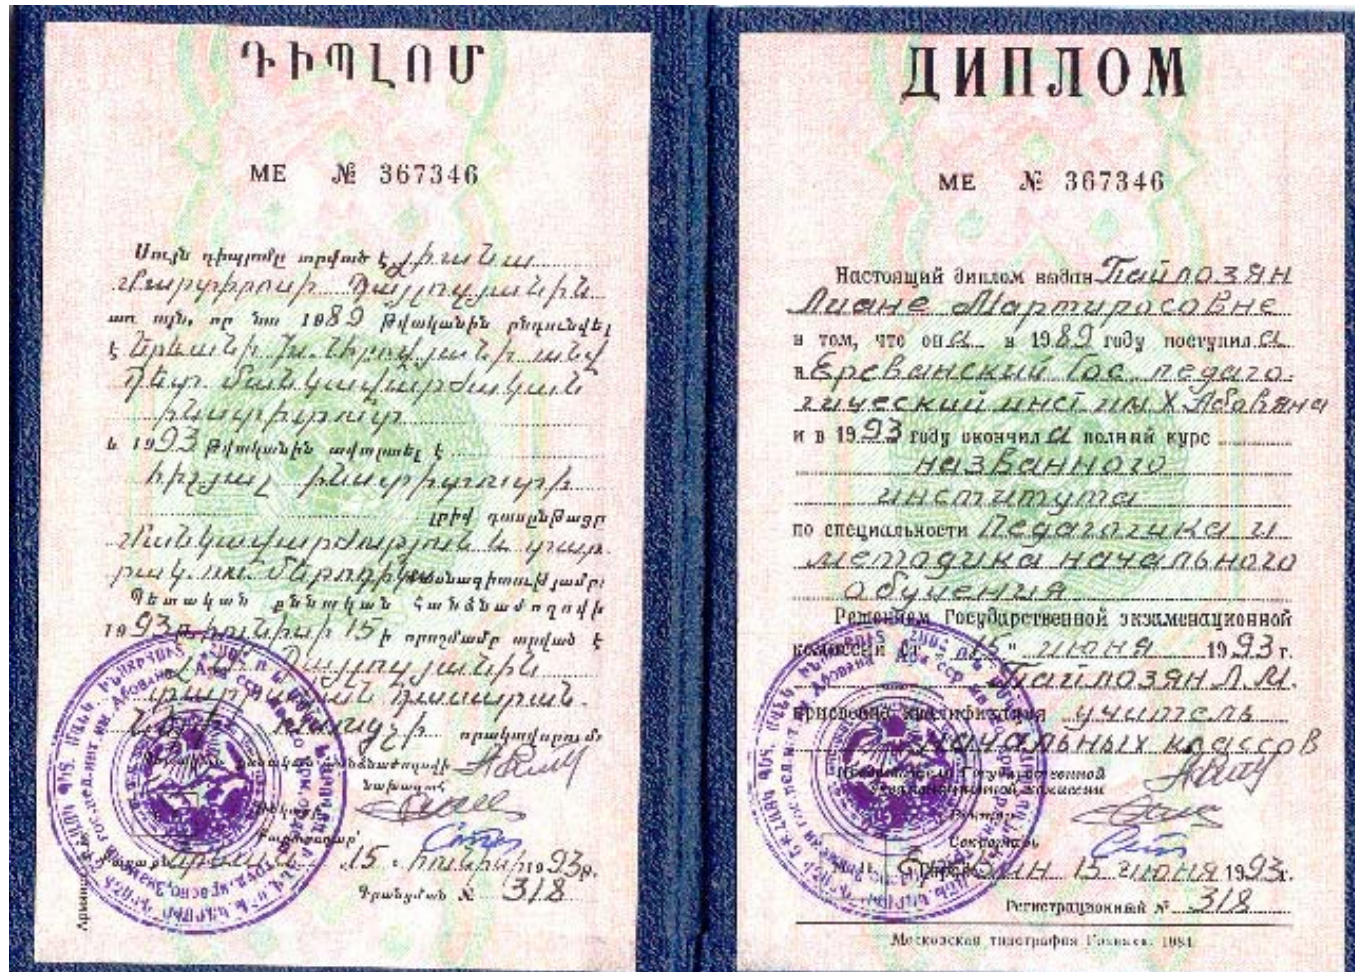 ԴԻՊԼՈՄ
МЕ № 367346
Սույն դիպլոմը տրված է Լիանա
Մարտիրոսի Պայլոզյանին
առ այն, որ նա 1989 թվականին ընդունվել
է Երևանի Խ. Աբովյանի անվ.
պետ. մանկավարժական
ինստիտուտ
և 1993 թվականին ավարտել է
հիշյալ ինստիտուտի
լրիվ դասընթացը
Մանկավարժություն և տար
րակ. ուս. մեթոդիկա մասնագիտությամբ:
Պետական քննական հանձնաժողովի
1993 թ. հունիսի 15 ի որոշմամբ տրված է
Պայլոզյանին
տարրական դասարան
ների որակավորում:
նախագահ
15 հունիսի 1993թ.
Գրանցման № 318
ДИПЛОМ
МЕ № 367346
Настоящий диплом выдан Пайлозян
Лиане Мартиросовне
в том, что она в 1989 году поступила
в Ереванский Гос. педаго-
гический инст им Х. Абовяна
и в 1993 году окончила полный курс
названного
института
по специальности Педагогика и
методика начального
обучения
Решением Государственной экзаменационной
комиссии от "15" июня 1993 г.
Пайлозян Л.М.
присвоена квалификация учитель
начальных классов
Председатель Государственной
экзаменационной комиссии
Ректор
Секретарь
15 июня 1993г.
Регистрационный № 318
Московская типография Гознака. 1984.